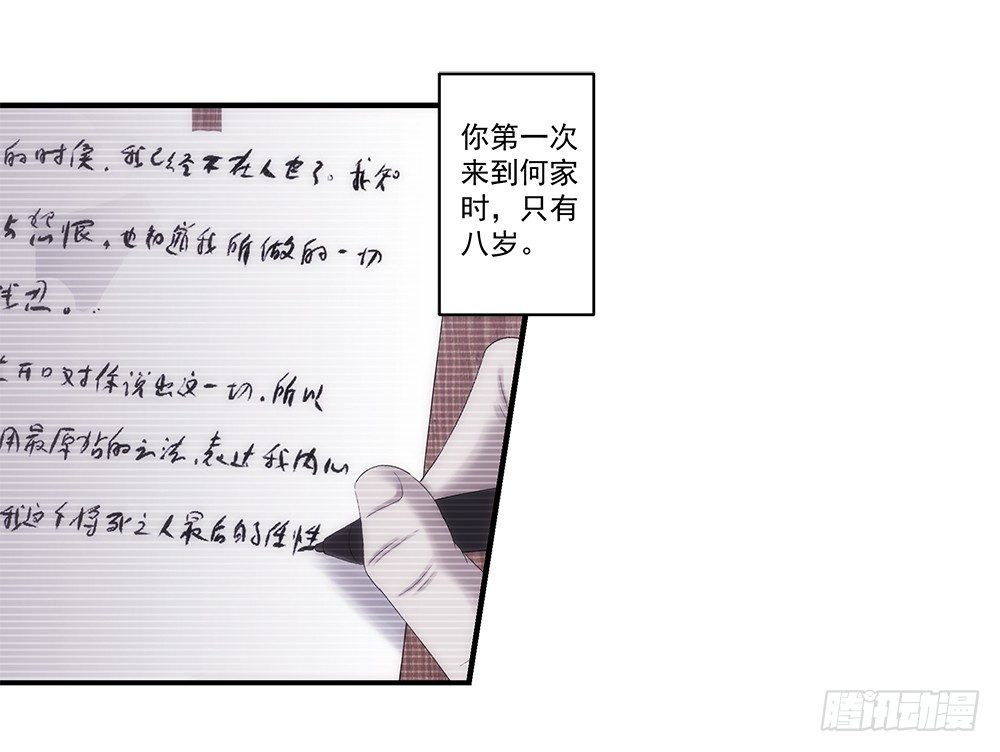 的时候，我已经不在人世了。我知
怨恨，也知道我所做的一切
忍。
开口对你说出这一切，所以
用最原始的方法，表达我内心
我这个将死之人最后的任性
你第一次
来到何家
时，只有
八岁。
腾讯动漫